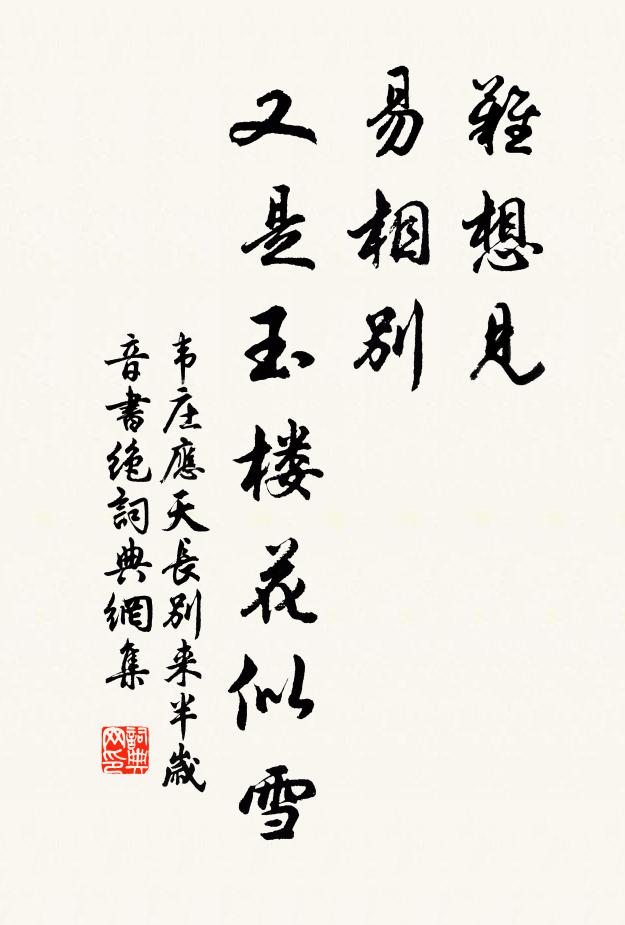 難想見
易相別
又是玉楼花似雪
韦庄應天長別来半歲
音書絶詞典網集
詞典
网印